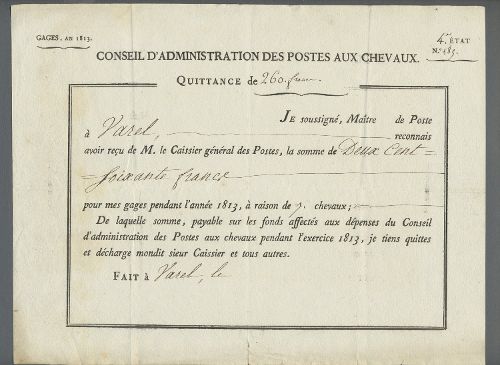 GAGES. AN 1813.
4.e ÉTAT
N.o 183.
CONSEIL D'ADMINISTRATION DES POSTES AUX CHEVAUX.
QUITTANCE de 260. francs.
JE soussigné, Maître de Poste
à Varel, reconnais
avoir reçu de M. le Caissier général des Postes, la somme de Deux Cent
Soixante francs
pour mes gages pendant l'année 1813, à raison de 7. chevaux;
De laquelle somme, payable sur les fonds affectés aux dépenses du Conseil
d'administration des Postes aux chevaux pendant l'exercice 1813, je tiens quittes
et décharge mondit sieur Caissier et tous autres.
FAIT à Varel, le